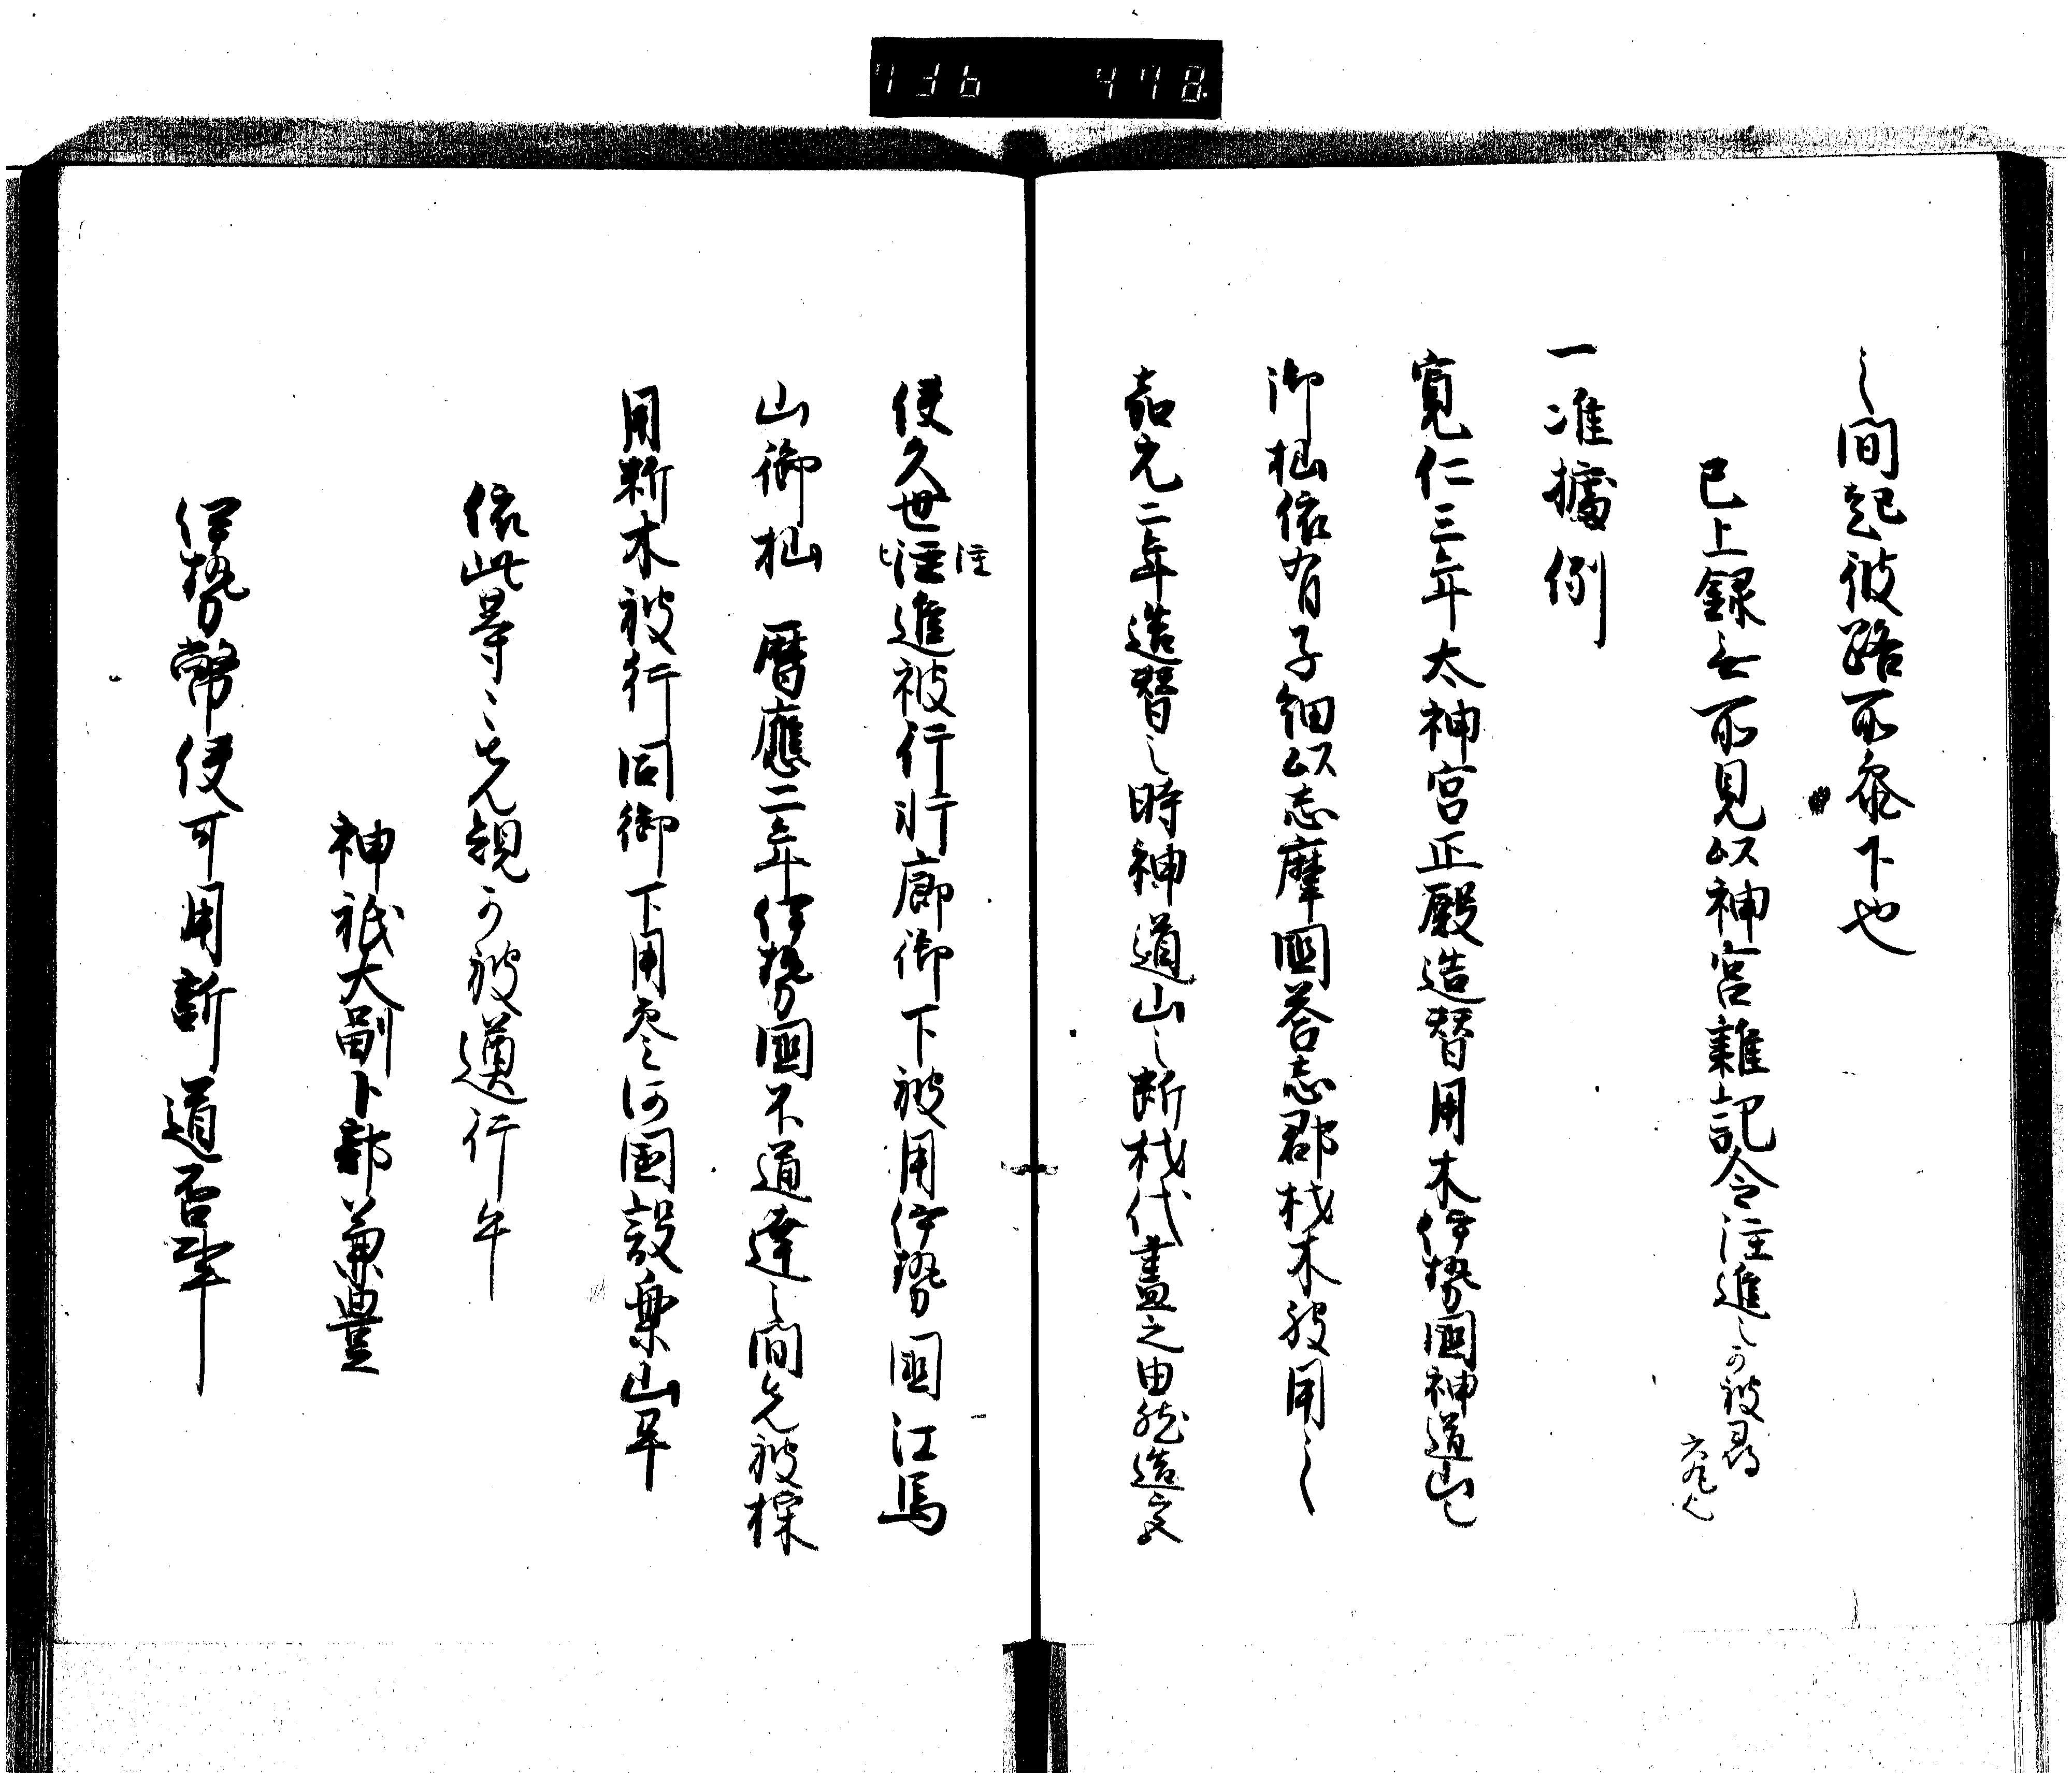 736 478
之間起彼路所参下也
已上録無所見以神宮雑記令注進之可被尋
一准據例
寛仁三年太神宮正殿造替用木伊勢國神道山也
御杣依有子細以志摩國答志郡材木被用之
嘉元二年造替之時神道山之断材代盡之由就造文
使久世注進被行行廊御下被用伊勢國江馬
注
山御杣 暦應二年伊勢國不通達之間先被採
用断木被行同御下用参河國設楽山畢
依此等之先規可被遵行乎
神祇大副卜部兼豊
伊勢幣使可用新道否事